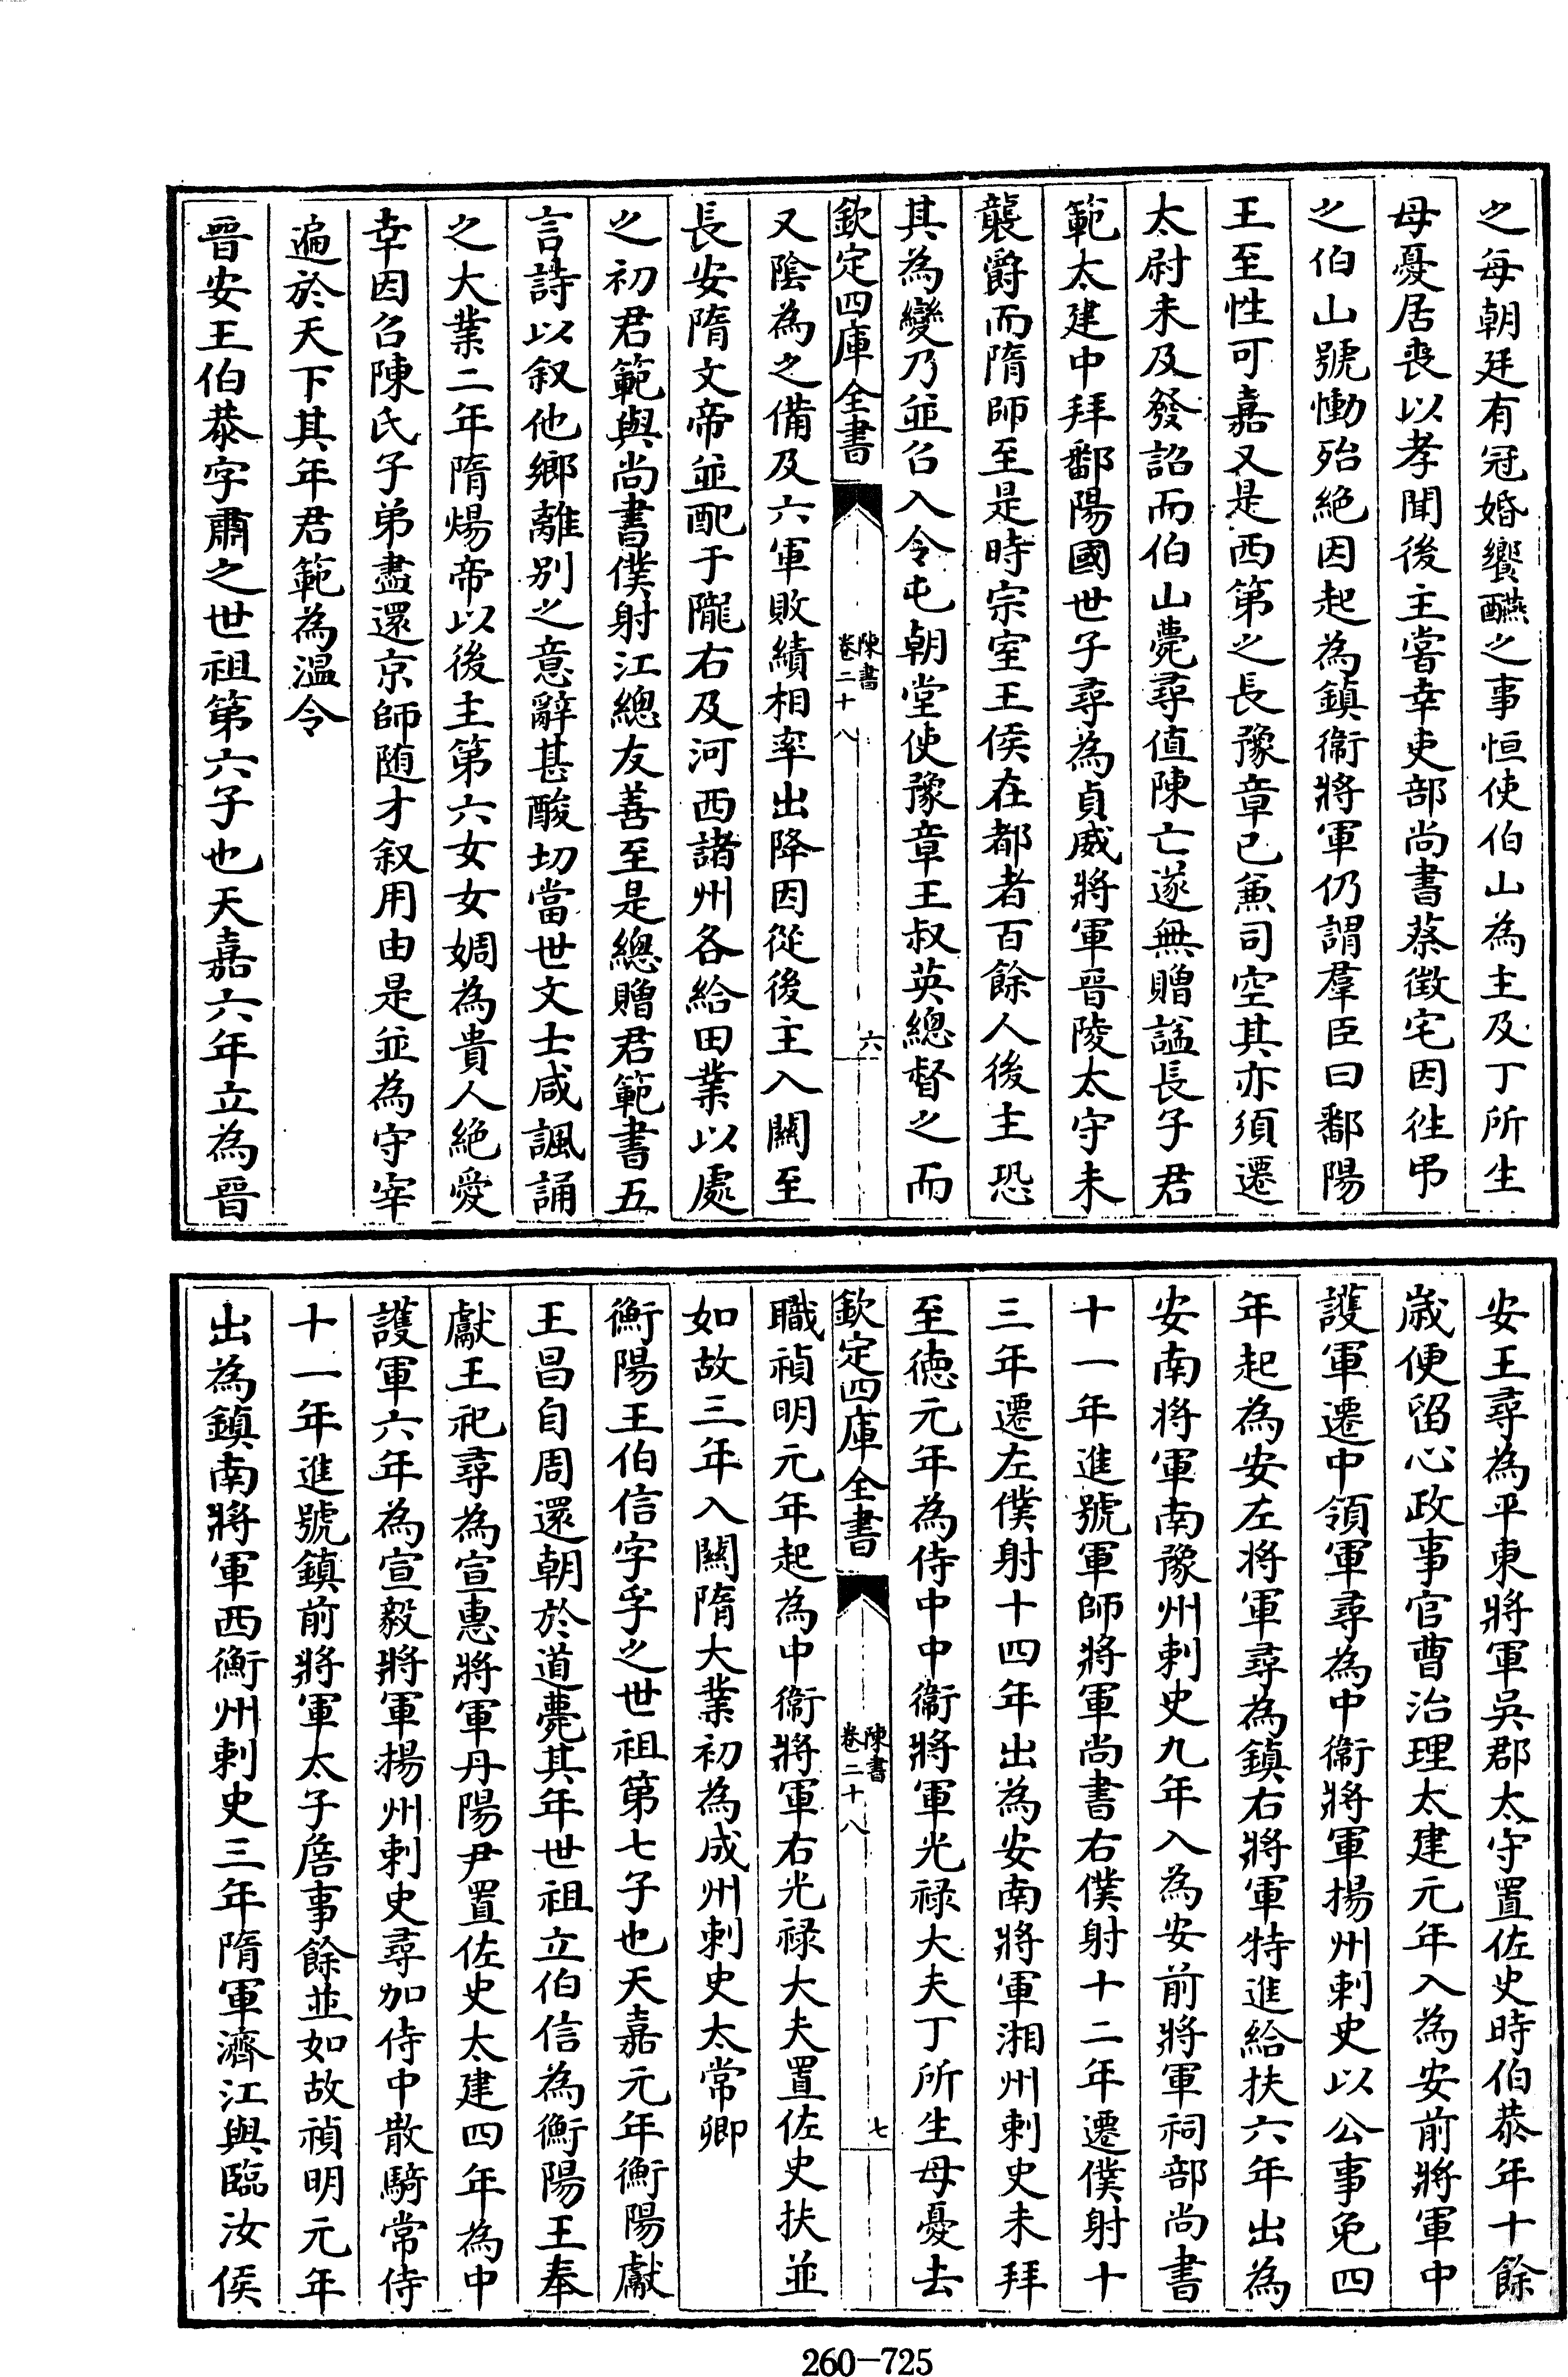 之每朝廷有冠婚饗醼之事恒使伯山為主及丁所生
母憂居喪以孝聞後主嘗幸吏部尚書蔡徵宅因往弔
之伯山號慟殆絶因起為鎮衞將軍仍謂羣臣曰鄱陽
王至性可嘉又是西第之長豫章已兼司空其亦須遷
太尉未及發詔而伯山薨尋值陳亡遂無贈諡長子君
範太建中拜鄱陽國世子尋為貞威將軍晉陵太守未
襲爵而隋師至是時宗室王侯在都者百餘人後主恐
其為變乃並召入令屯朝堂使豫章王叔英總督之而
欽定四庫全書
陳書
卷二十八
六
又陰為之備及六軍敗績相率出降因從後主入關至
長安隋文帝並配于隴右及河西諸州各給田業以處
之初君範與尚書僕射江總友善至是總贈君範書五
言詩以叙他鄉離别之意辭甚酸切當世文士咸諷誦
之大業二年隋煬帝以後主第六女女婤為貴人絶愛
幸因召陳氏子弟盡還京師随才叙用由是並為守宰
遍於天下其年君範為温令
晉安王伯恭字肅之世祖第六子也天嘉六年立為晉
安王尋為平東將軍吳郡太守置佐史時伯恭年十餘
歳便留心政事官曹治理太建元年入為安前將軍中
護軍遷中領軍尋為中衞將軍揚州刺史以公事免四
年起為安左將軍尋為鎮右將軍特進給扶六年出為
安南將軍南豫州刺史九年入為安前將軍祠部尚書
十一年進號軍師將軍尚書右僕射十二年遷僕射十
三年遷左僕射十四年出為安南將軍湘州刺史未拜
至徳元年為侍中中衞將軍光禄大夫丁所生母憂去
欽定四庫全書
陳書
卷二十八
七
職禎明元年起為中衞將軍右光禄大夫置佐史扶並
如故三年入關隋大業初為成州刺史太常卿
衡陽王伯信字孚之世祖第七子也天嘉元年衡陽獻
王昌自周還朝於道薨其年世祖立伯信為衡陽王奉
獻王祀尋為宣惠將軍丹陽尹置佐史太建四年為中
護軍六年為宣毅將軍揚州刺史尋加侍中散騎常侍
十一年進號鎮前將軍太子詹事餘並如故禎明元年
出為鎮南將軍西衡州刺史三年隋軍濟江與臨汝侯
260-725